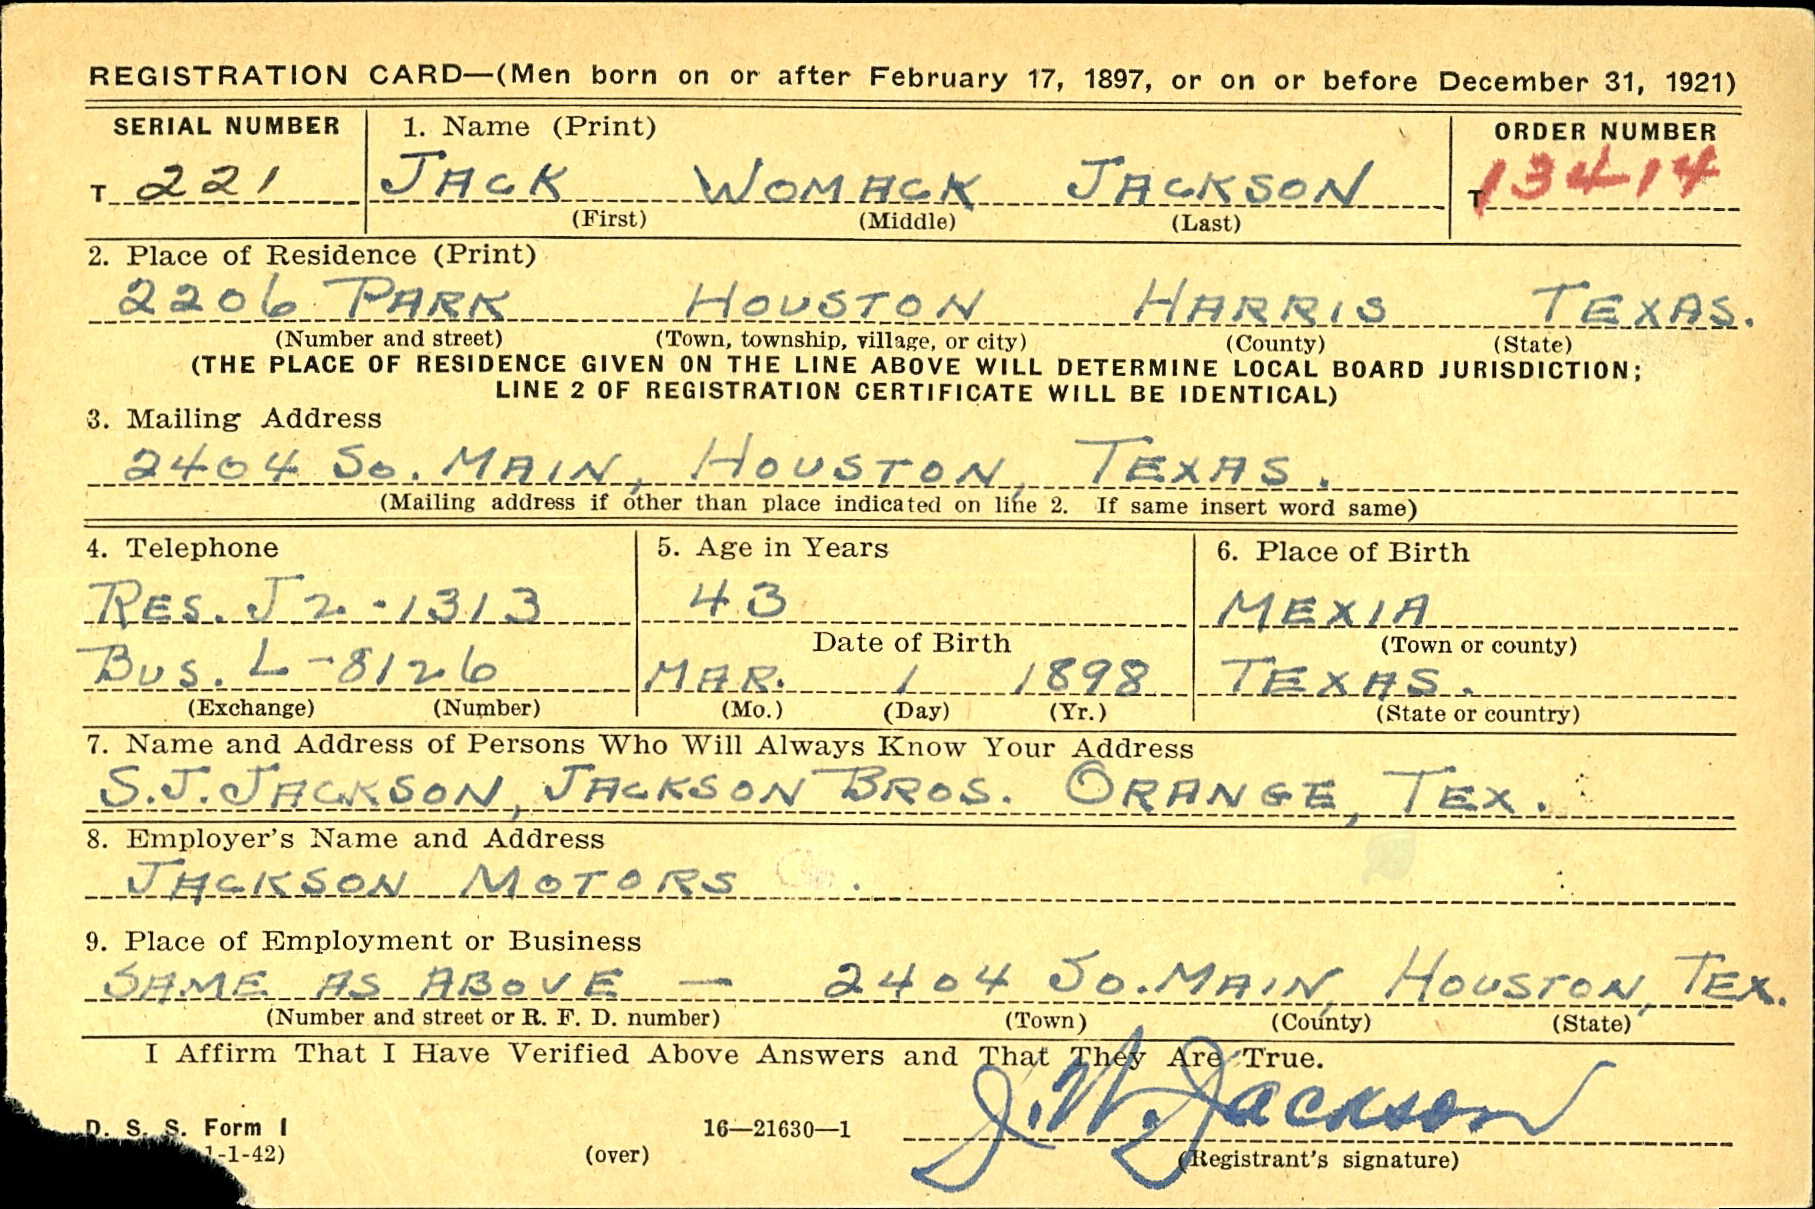 REGISTRATION CARD—(Men born on or after February 17, 1897, or on or before December 31, 1921)
SERIAL NUMBER 1. Name (Print) ORDER NUMBER
T 221 JACK WOMACK JACKSON T 13414
(First) (Middle) (Last)
2. Place of Residence (Print)
2206 PARK HOUSTON HARRIS TEXAS.
(Number and street) (Town, township, village, or city) (County) (State)
(THE PLACE OF RESIDENCE GIVEN ON THE LINE ABOVE WILL DETERMINE LOCAL BOARD JURISDICTION;
LINE 2 OF REGISTRATION CERTIFICATE WILL BE IDENTICAL)
3. Mailing Address
2404 SO. MAIN, HOUSTON, TEXAS.
(Mailing address if other than place indicated on line 2. If same insert word same)
4. Telephone 5. Age in Years 6. Place of Birth
RES. J2-1313 43 MEXIA
Date of Birth (Town or county)
BUS. L-8126 MAR. 1 1898 TEXAS.
(Exchange) (Number) (Mo.) (Day) (Yr.) (State or country)
7. Name and Address of Persons Who Will Always Know Your Address
S.J. JACKSON, JACKSON BROS. ORANGE, TEX.
8. Employer's Name and Address
JACKSON MOTORS .
9. Place of Employment or Business
SAME AS ABOVE — 2404 SO. MAIN, HOUSTON, TEX.
(Number and street or R. F. D. number) (Town) (County) (State)
I Affirm That I Have Verified Above Answers and That They Are True.
J. W. Jackson
D. S. S. Form 1 16—21630—1
1-1-42) (over) (Registrant's signature)